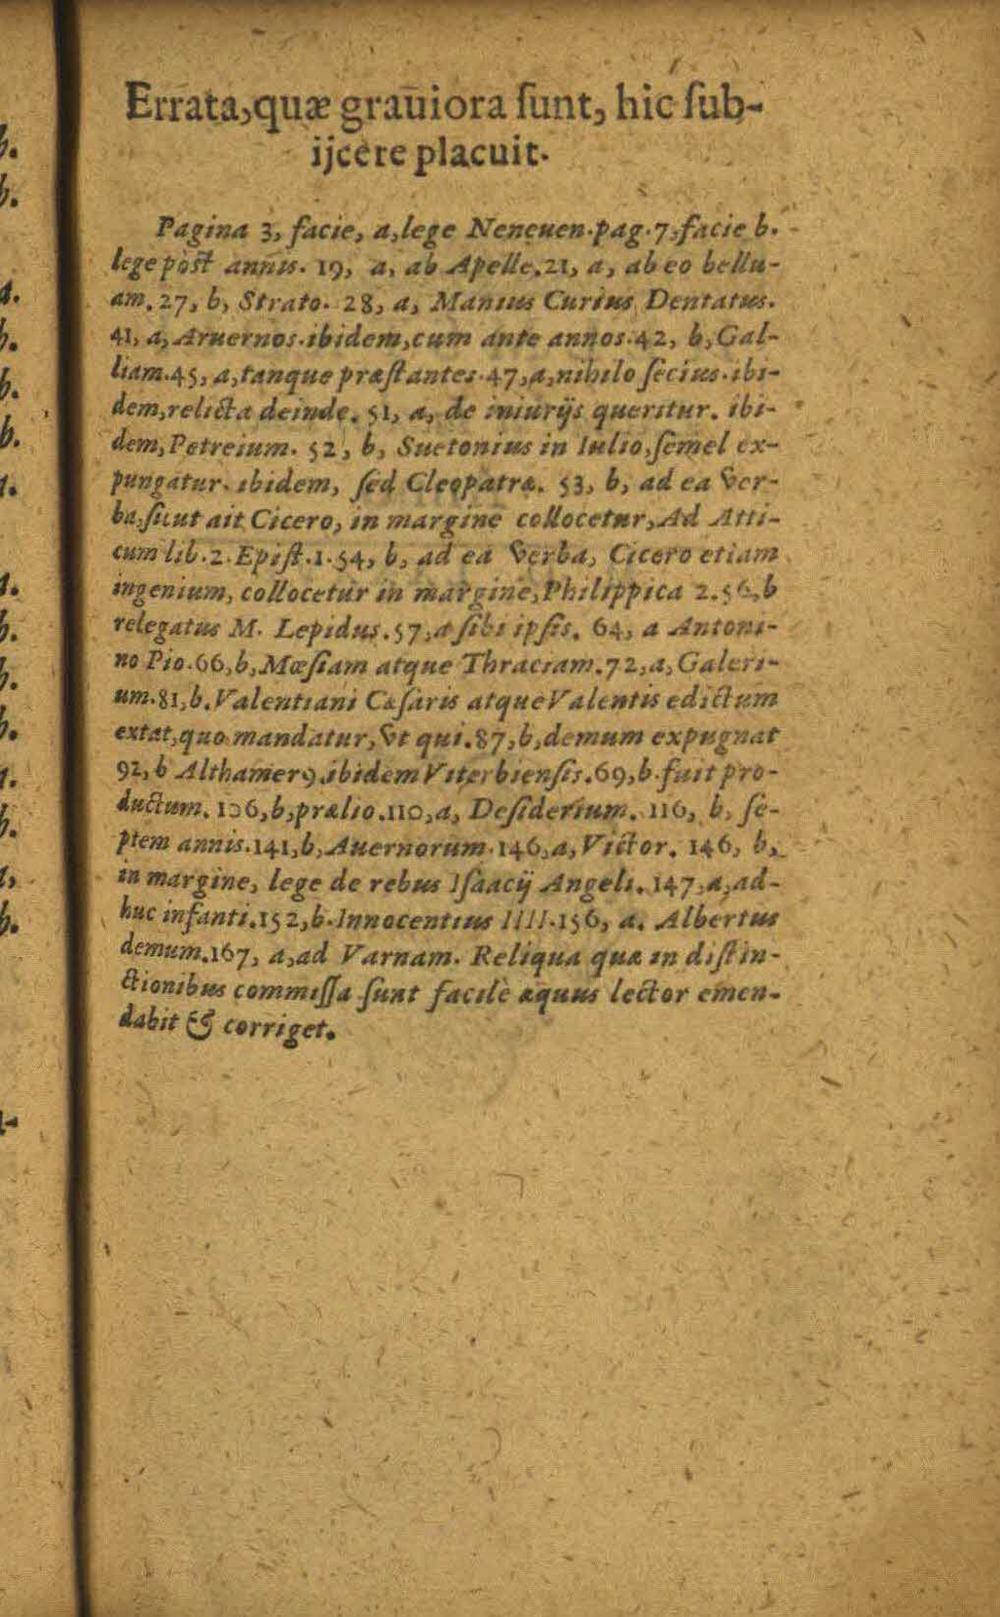 Errata, quæ grauiora ſunt, hic ſub-
ijcere placuit.
Pagina 3, facie, a, lege Neneuen. pag. 7, facie b.
lege pòſt annis. 19, a, ab Apelle. 21, a, ab eo bellu-
am. 27, b, Strato. 28, a, Manius Curius Dentatus.
41, a, Aruernos. ibidem, cum ante annos. 42, b, Gal-
liam. 45, a, tanque præſtantes. 47, a, nihilo ſecius. ibi-
dem, relicta deinde. 51, a, de iniurijs queritur. ibi-
dem, Petreium. 52, b, Suetonius in Iulio, ſemel ex-
pungatur. ibidem, ſed Cleopatræ. 53, b, ad ea ver-
ba, ſicut ait Cicero, in margine collocetur, Ad Atti-
cum lib. 2. Epiſt. 1. 54, b, ad ea verba, Cicero etiam
ingenium, collocetur in margine, Philippica 2. 56, b
relegatus M. Lepidus. 57, a ſibi ipſis. 64, a Antoni-
no Pio. 66, b, Mœſiam atque Thraciam. 72, a, Galeri-
um. 81, b. Valentiani Cæſaris atque Valentis edictum
extat, quo mandatur, vt qui. 87, b, demum expugnat
92, b Althamerꝰ. ibidem Viterbienſis. 69, b. fuit pro-
ductum. 106, b, prælio. 110, a, Deſiderium. 116, b, ſe-
ptem annis. 141, b, Auernorum. 146, a, Victor. 146, b,
in margine, lege de rebus Iſaacij Angeli. 147, a, ad-
huc infanti. 152, b. Innocentius IIII. 156, a. Albertus
demum. 167, a, ad Varnam. Reliqua quæ in diſtin-
ctionibus commiſſa ſunt facilè æquus lector emen-
dabit & corriget.